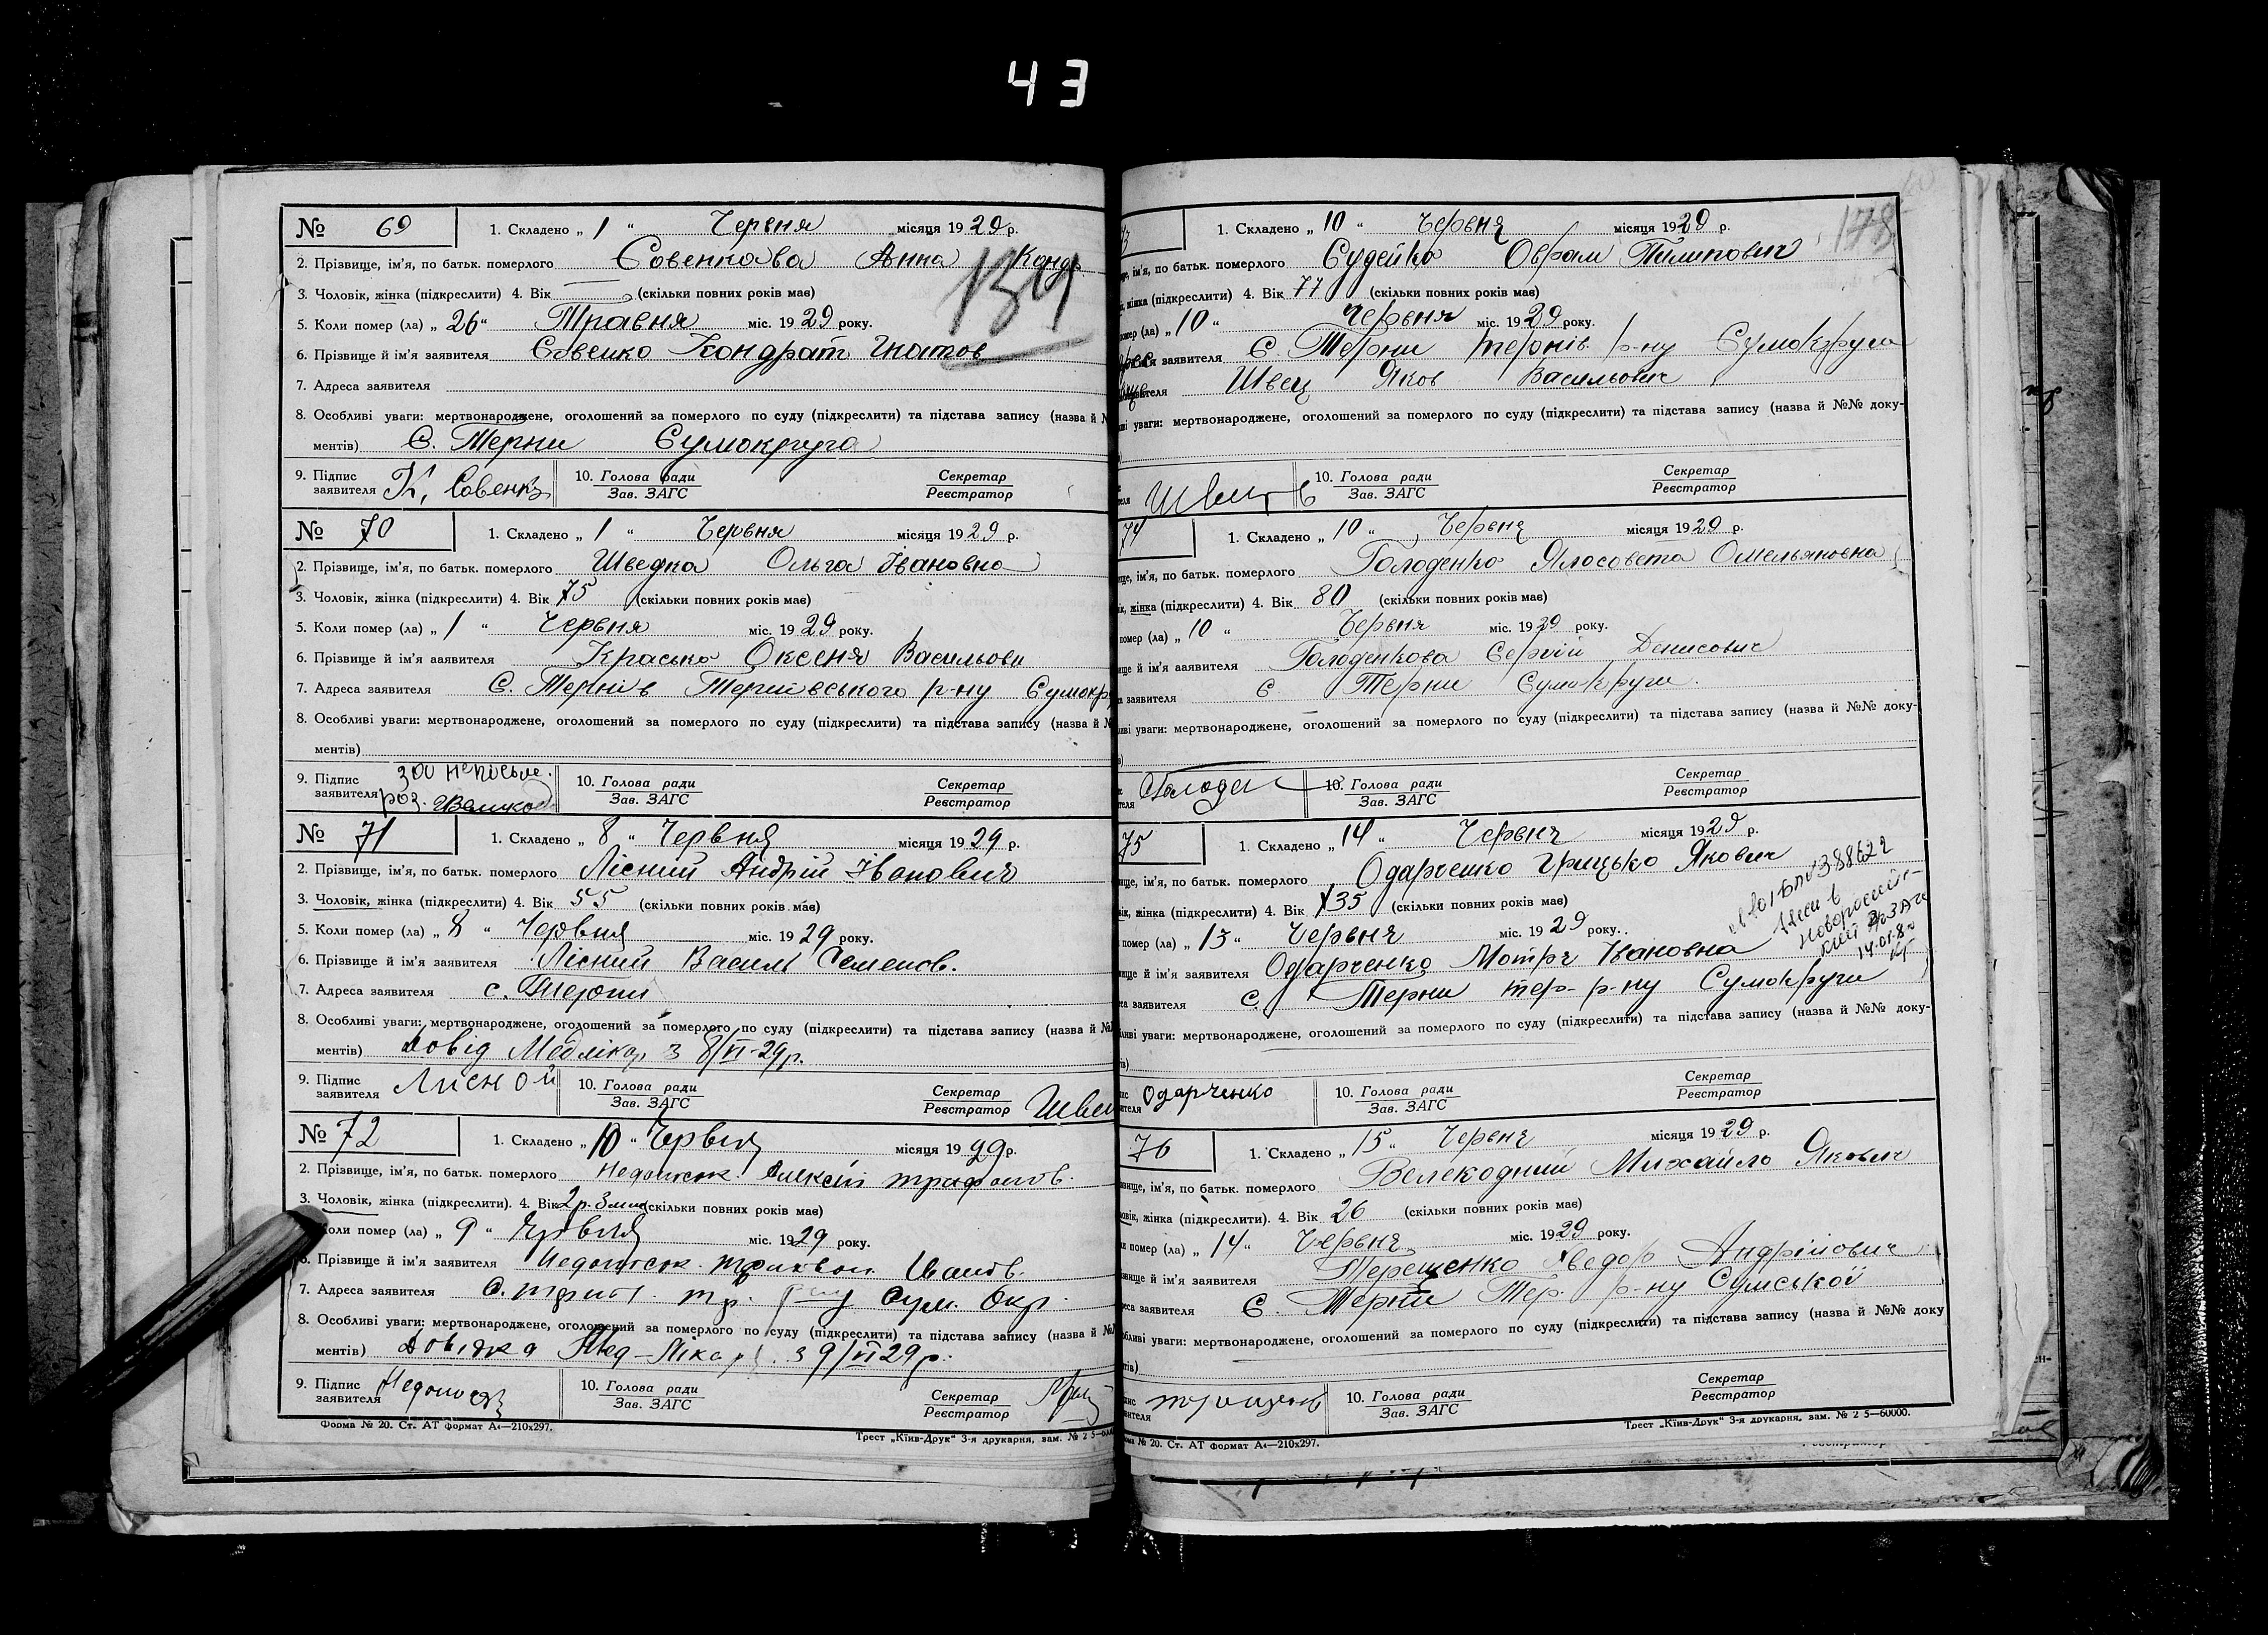 43
№ 69 1. Складено „ 1 “ Червня місяця 1929 р.
2. Прізвище, ім'я, по батьк. померлого Совенкова Анна Кондр
134
3. Чоловік, жінка (підкреслити) 4. Вік (скільки повних років має)
5. Коли помер (ла) „ 26 “ Травня міс. 1929 року.
6. Прізвище й ім'я заявителя Совенко Кондрат Гнатов
7. Адреса заявителя
8. Особливі уваги: мертвонароджене, оголошений за померлого по суду (підкреслити) та підстава запису (назва й №
ментів) С. Терни Сумокруга
9. Підпис заявителя К. Совенко 10. Голова ради Зав. ЗАГС Секретар Реєстратор
№ 70 1. Складено „ 1 “ Червня місяця 1929 р.
2. Прізвище, ім'я, по батьк. померлого Шведка Ольга Івановна
3. Чоловік, жінка (підкреслити) 4. Вік 75 (скільки повних років має)
5. Коли помер (ла) „ 1 “ Червня міс. 1929 року.
6. Прізвище й ім'я заявителя Красько Оксеня Васильовн
7. Адреса заявителя С. Тернів Тернівського р-ну Сумокр
8. Особливі уваги: мертвонароджене, оголошений за померлого по суду (підкреслити) та підстава запису (назва й №
ментів)
9. Підпис заявителя за неписьме. роз. 10. Голова ради Зав. ЗАГС Секретар Реєстратор
№ 71 1. Складено „ 8 “ Червня місяця 1929 р.
2. Прізвище, ім'я, по батьк. померлого Лісний Андрій Іванович
3. Чоловік, жінка (підкреслити) 4. Вік 55 (скільки повних років має)
5. Коли помер (ла) „ 8 “ Червня міс. 1929 року.
6. Прізвище й ім'я заявителя Лісний Василь Семенов.
7. Адреса заявителя с. Терни
8. Особливі уваги: мертвонароджене, оголошений за померлого по суду (підкреслити) та підстава запису (назва й №
ментів) Довід Медлікар з 8/VI-29р.
9. Підпис заявителя Лисной 10. Голова ради Зав. ЗАГС Секретар Реєстратор Швец
№ 72 1. Складено „ 10 “ Червня місяця 1929 р.
2. Прізвище, ім'я, по батьк. померлого Недоносок Алексій
3. Чоловік, жінка (підкреслити). 4. Вік 2 р. 3 міс (скільки повних років має)
Коли помер (ла) „ 9 “ Червня міс. 1929 року.
6. Прізвище й ім'я заявителя Недоносок Іванов.
7. Адреса заявителя С. Сум. Окр.
8. Особливі уваги: мертвонароджене, оголошений за померлого по суду (підкреслити) та підстава запису (назва й №
ментів) Довідка Мед-Лікар. з 9/VI 29 р.
9. Підпис заявителя 10. Голова ради Зав. ЗАГС Секретар Реєстратор
Форма № 20. Ст. АТ формат А4—210х297. Трест „Київ-Друк“ 3-я друкарня, зам. № 2 5—6000
3 1. Складено „ 10 “ Червня місяця 1929 р. 178
ще, ім'я, по батьк. померлого Судейко Оврам Пилипович
жінка (підкреслити) 4. Вік 77 (скільки повних років має)
помер (ла) „ 10 “ Червня міс. 1929 року.
заявителя С. Терни Тернів. р-ну Сумокруги
Швец Яков Васильович
уваги: мертвонароджене, оголошений за померлого по суду (підкреслити) та підстава запису (назва й №№ доку-
Швец 10. Голова ради Зав. ЗАГС Секретар Реєстратор
74 1. Складено „ 10 “ Червня місяця 1929 р.
ще, ім'я, по батьк. померлого Голоденко Ялосовета Омельяновна
жінка (підкреслити) 4. Вік 80 (скільки повних років має)
помер (ла) „ 10 “ Червня міс. 1929 року.
ще й ім'я заявителя Голоденкова Сергій Денисович
заявителя С. Терни Сумокруги.
уваги: мертвонароджене, оголошений за померлого по суду (підкреслити) та підстава запису (назва й №№ доку-
Голоден 10. Голова ради Зав. ЗАГС Секретар Реєстратор
75 1. Складено „ 14 “ Червня місяця 1929 р.
ще, ім'я, по батьк. померлого Одарченко Грицько Якович
жінка (підкреслити) 4. Вік 35 (скільки повних років має)
помер (ла) „ 13 “ Червня міс. 1929 року.
ще й ім'я заявителя Одарченко Мотря Івановна
заявителя С. Терни тер- р-ну Сумокруги
уваги: мертвонароджене, оголошений за померлого по суду (підкреслити) та підстава запису (назва й №№ доку-
Одарченко 10. Голова ради Зав. ЗАГС Секретар Реєстратор
76 1. Складено „ 15 “ Червня місяця 1929 р.
ще, ім'я, по батьк. померлого Велекодний Михайло Якович
жінка (підкреслити). 4. Вік 26 (скільки повних років має)
помер (ла) „ 14 “ Червня міс. 1929 року.
ще й ім'я заявителя Терещенко Хведор Андрійович
заявителя С. Терни Тер. р-ну Сумської
уваги: мертвонароджене, оголошений за померлого по суду (підкреслити) та підстава запису (назва й №№ доку
10. Голова ради Зав. ЗАГС Секретар Реєстратор
№ 20. Ст. АТ формат А4—210х297. Трест „Київ-Друк“ 3-я друкарня, зам. № 2 5—60000.